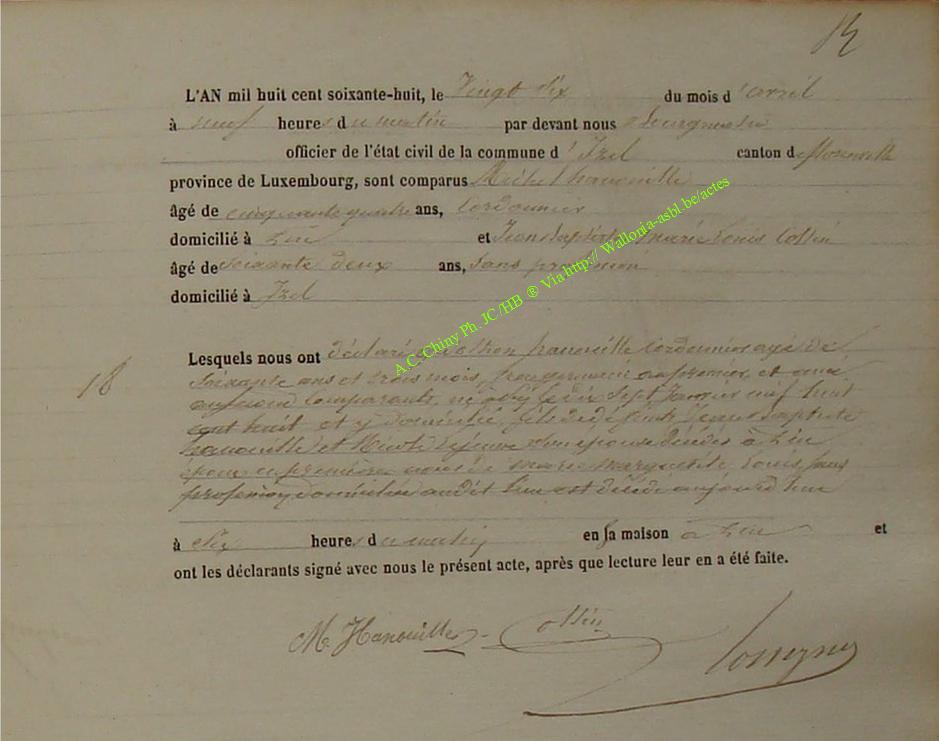 L'AN mil huit cent soixante-huit, le Vingt Six du mois d'avril
à neuf heures du matin par devant nous Bourgmestre
officier de l'état civil de la commune d'Izel canton de florenville
province de Luxembourg, sont comparus Michel hanouille
âgé de cinquante quatre ans, Cordonnier
domicilié à et Jean baptiste marie Louis Collin
âgé de Soixante deux ans, Sans profession
domicilié à Izel
18
Lesquels nous ont déclaré que hanouille Cordonnier agé de
Soixante ans et trois mois, germain au premier, et ami
au second Comparants, né dix Sept Janvier mil huit
cent huit et y domicilié, fils de baptiste
hanouille et Lejeune son épouse décédés à
époux en premières noces de marie marguerite Louis, Sans
profession, domiciliée audit lieu est décédé aujourd'hui
à Six heures du matin en Sa maison à et
ont les déclarants signé avec nous le présent acte, après que lecture leur en a été faite.
M. Hanouille Collin
A.C. Chiny Ph. JC/HB ® Via http:// Wallonia-asbl.be/actes